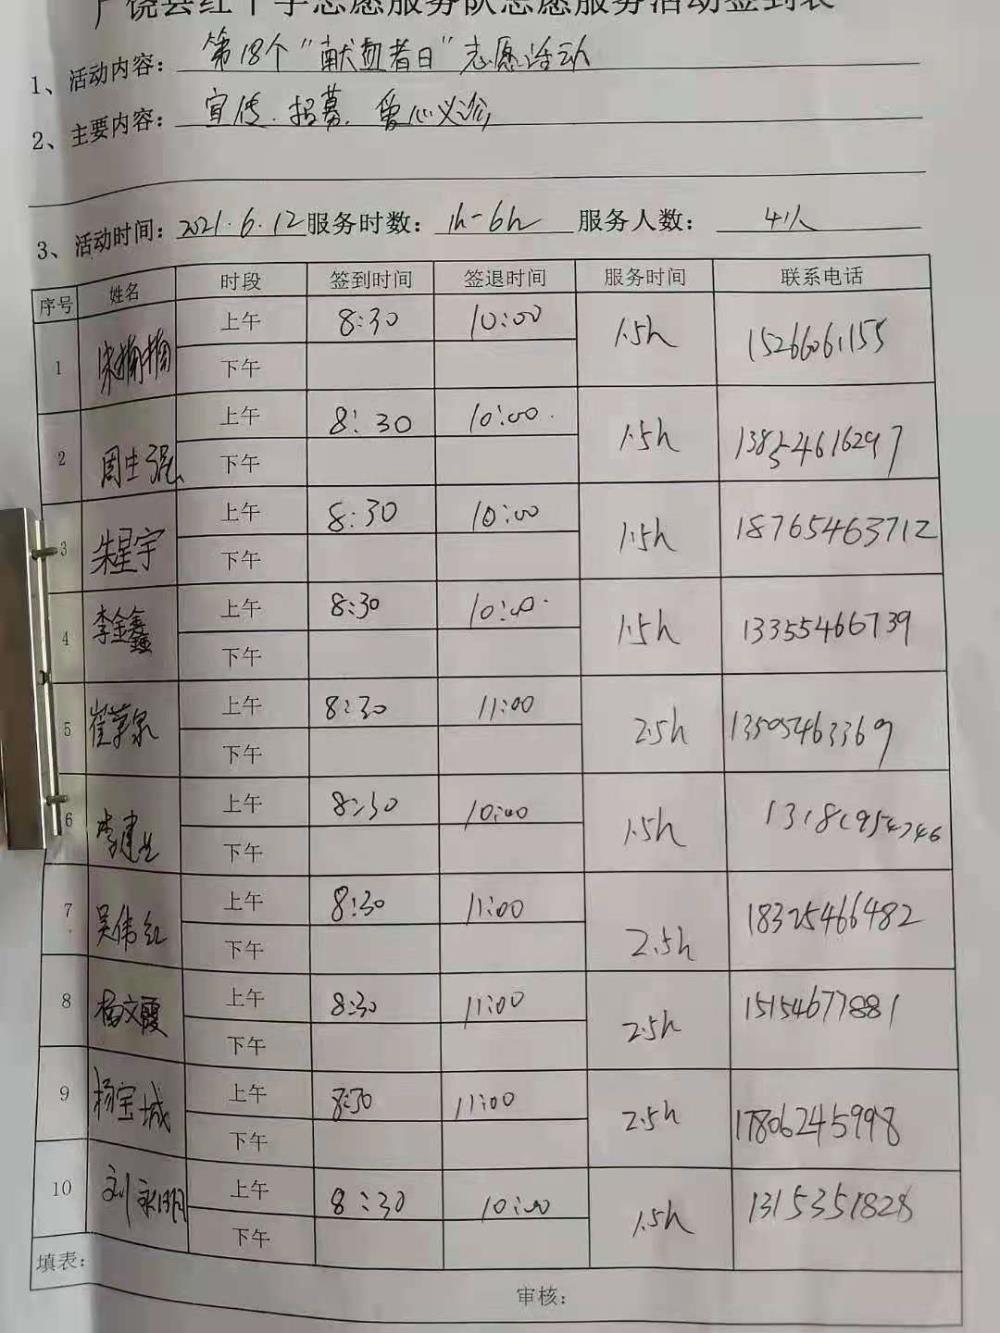 广饶县红十字志愿服务队志愿服务活动签到表
1、活动内容：第18个“献血者日”志愿活动
2、主要内容：宣传、招募、爱心义诊
3、活动时间：2021.6.12 服务时数：1h-6h 服务人数：41人
序号 姓名 时段 签到时间 签退时间 服务时间 联系电话
1 宋楠楠 上午 8:30 10:00 1.5h 15266061155
下午
2 周生强 上午 8:30 10:00 1.5h 13854616297
下午
3 朱星宇 上午 8:30 10:00 1.5h 18765463712
下午
4 李金鑫 上午 8:30 10:00 1.5h 13355466739
下午
5 上午 8:30 11:00 2.5h 13505463369
下午
6 上午 8:30 10:00 1.5h
下午
7 吴伟红 上午 8:30 11:00 2.5h 18325466482
下午
8 杨文霞 上午 8:30 11:00 2.5h 15154677881
下午
9 杨宝城 上午 8:30 11:00 2.5h 17806245998
下午
10 上午 8:30 10:00 1.5h 13153351828
下午
填表：
审核：